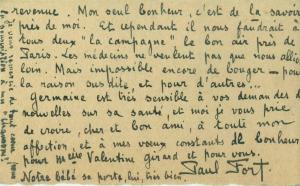 revenue. Mon seul bonheur, c'est de la savoir
près de moi. Et cependant il nous faudrait à
tous deux "la campagne" le bon air près de
Paris. Les médecins ne veulent pas que nous allions
loin. Mais impossible encore de bouger — pour
la raison susdite et pour d'autres...
Germaine est très sensible à vos demandes de
nouvelles sur sa santé, et moi je vous prie
de croire, cher et bon ami, à toute mon
affection, et à mes vœux constants de bonheur
pour Melle Valentine Girard et pour vous.
Paul Fort
Notre Bébé se porte, lui, très bien.